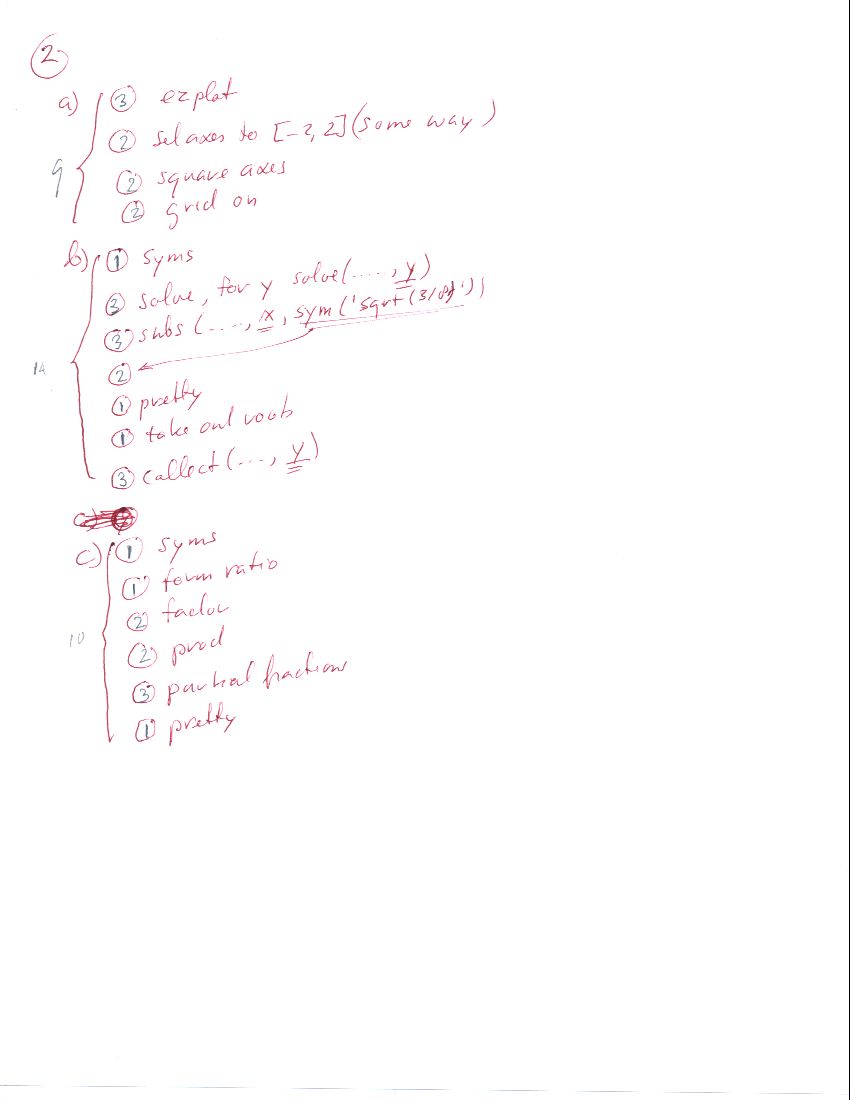 2
a) 3 ezplot
2 set axes to [-2, 2] (some way)
9 2 square axes
2 grid on
b) 1 syms
3 solve, for y solve(...., y)
3 subs (...., x, sym('sqrt(3/
14 2
1 pretty
1 take out roots
3 collect (..., y)
c) 1 syms
1 form ratio
2 factor
10 2 prod
3 partial fractions
1 pretty